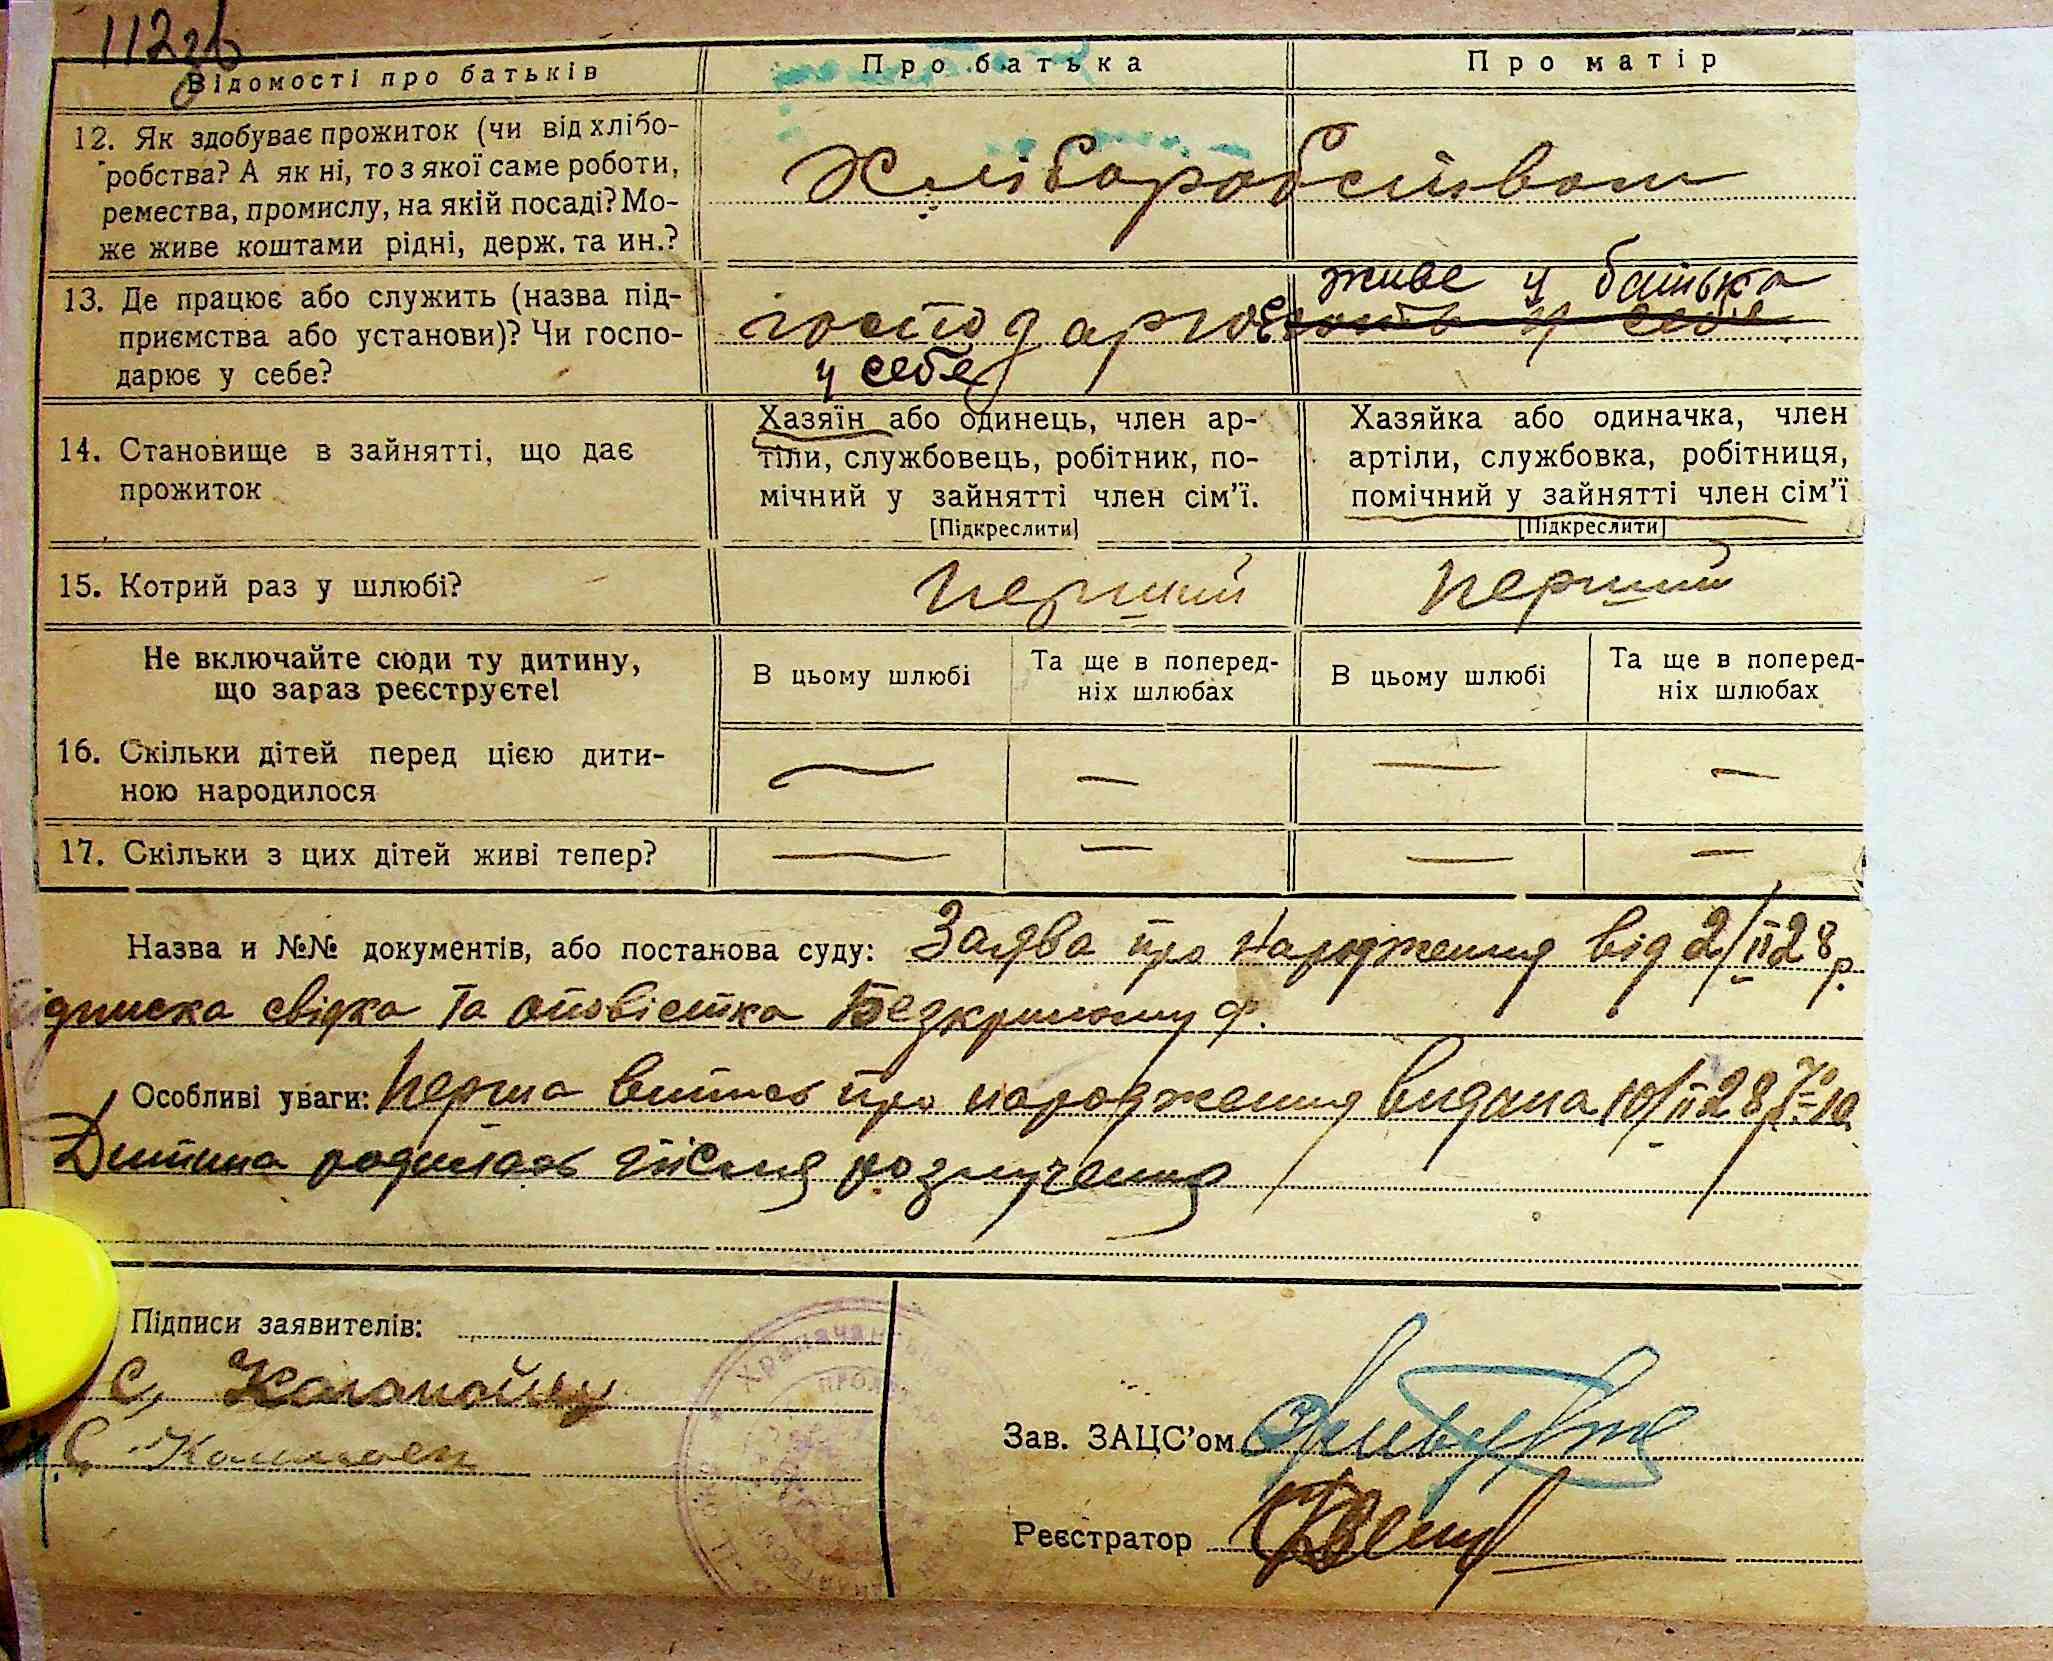 112зв
Відомості про батьків
Про батька
Про матір
12. Як здобуває прожиток (чи від хлібо-
робства? А як ні, то з якої саме роботи,
ремества, промислу, на якій посаді? Мо-
же живе коштами рідні, держ. та ин.?
Хліборобством
13. Де працює або служить (назва під-
приємства або установи)? Чи госпо-
дарює у себе?
господарює
у себе
живе у батька
14. Становище в зайнятті, що дає
прожиток
Хазяїн або одинець, член ар-
тіли, службовець, робітник, по-
мічний у зайнятті член сім'ї.
[Підкреслити]
Хазяйка або одиначка, член
артіли, службовка, робітниця,
помічний у зайнятті член сім'ї
[Підкреслити]
15. Котрий раз у шлюбі?
перший
перший
Не включайте сюди ту дитину,
що зараз реєструєте!
В цьому шлюбі
Та ще в поперед-
ніх шлюбах
В цьому шлюбі
Та ще в поперед-
ніх шлюбах
16. Скільки дітей перед цією дити-
ною народилося
— — — —
17. Скільки з цих дітей живі тепер?
— — — —
Назва и №№ документів, або постанова суду: Заява про народження від 2/II 28 р.
підписка свідка та оповістка ф.
Особливі уваги: Перша випись про народження видана 10/II 28
Дитина родилась після розлучення
Підписи заявителів:
С.
С.
Зав. ЗАЦС'ом
Реєстратор